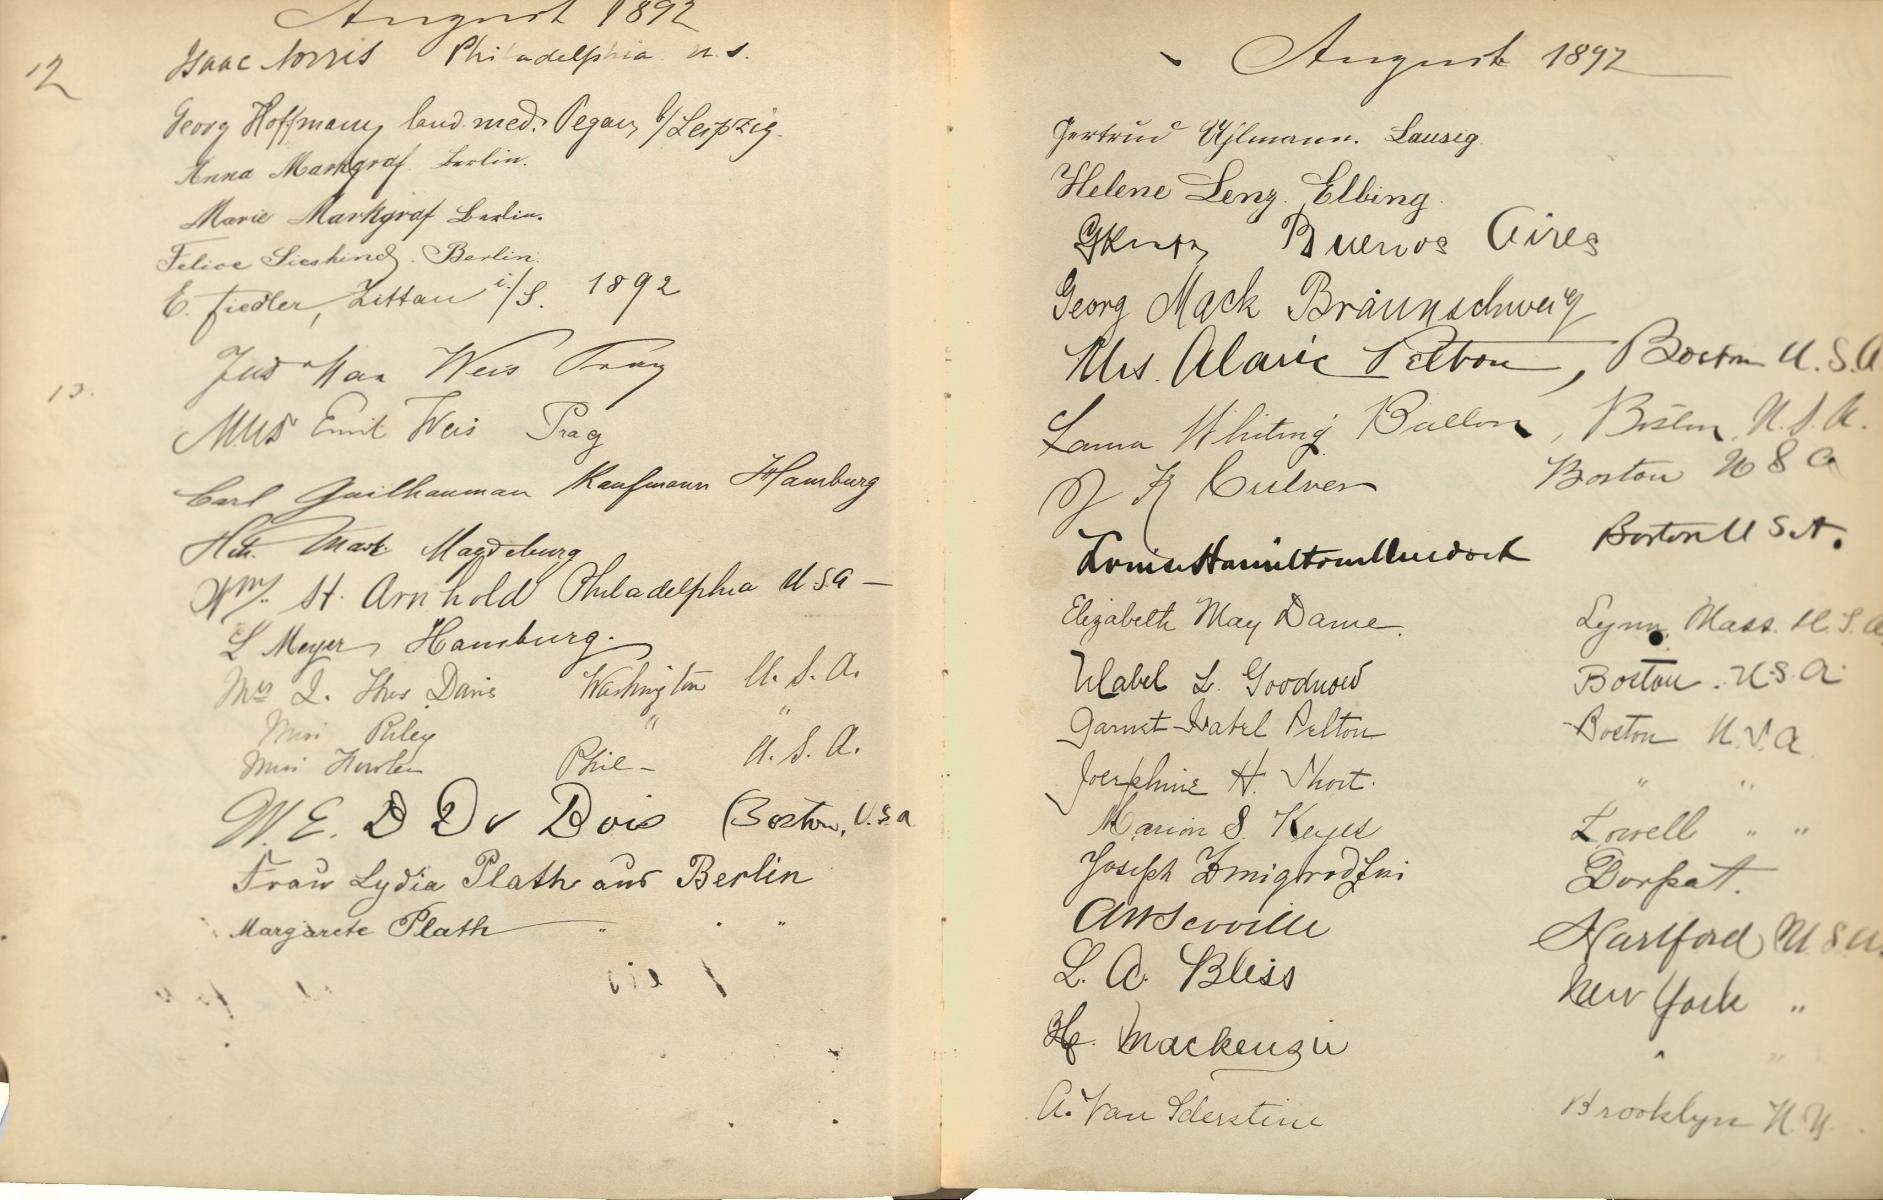 August 1892
12
Isaac Norris Philadelphia U.S.
Georg Hoffmann, cand. med. Pegau b/Leipzig.
Anna Markgraf. Berlin.
Marie Markgraf Berlin.
Felice Berlin.
E. Fiedler, Zittau i/S. 1892
Weis Prag
13.
Emil Weis Prag
Carl Guilhauman Kaufmann Hamburg
Magdeburg
Wm. H. Arnhold Philadelphia U.S.A —
L Meyer, Hamburg.
Mrs Davis Washington U. S. A.
Miss Riley " "
Miss Phil – U. S. A.
W. E. B Du Bois (Boston, U.S.A
Frau Lydia Plath aus Berlin
Margarete Plath " "
August 1892
Gertrud Uhlmann. Laucig
Helene Lenz. Elbing.
Buenos Aires
Georg Mack Braunschweig
Mrs. Alaric Pelton, Boston U.S.A
Whiting Bullon, Boston, U.S.A.
Culver Boston U S A
Louise Hamilton Murdock Boston U S A.
Elizabeth May Dame. Lynn, Mass. U.S.A
Mabel L. Goodnow Boston. U.S.A.
Garnet Isabel Pelton Boston U.S.A.
Josephine H. Short. " "
Marion S. Keyes Lowell " "
Joseph Dorpat.
Scoville Hartford U S A.
L. A. Bliss New York "
H. Mackenzie " "
A. Van Sderstine Brooklyn N.Y.